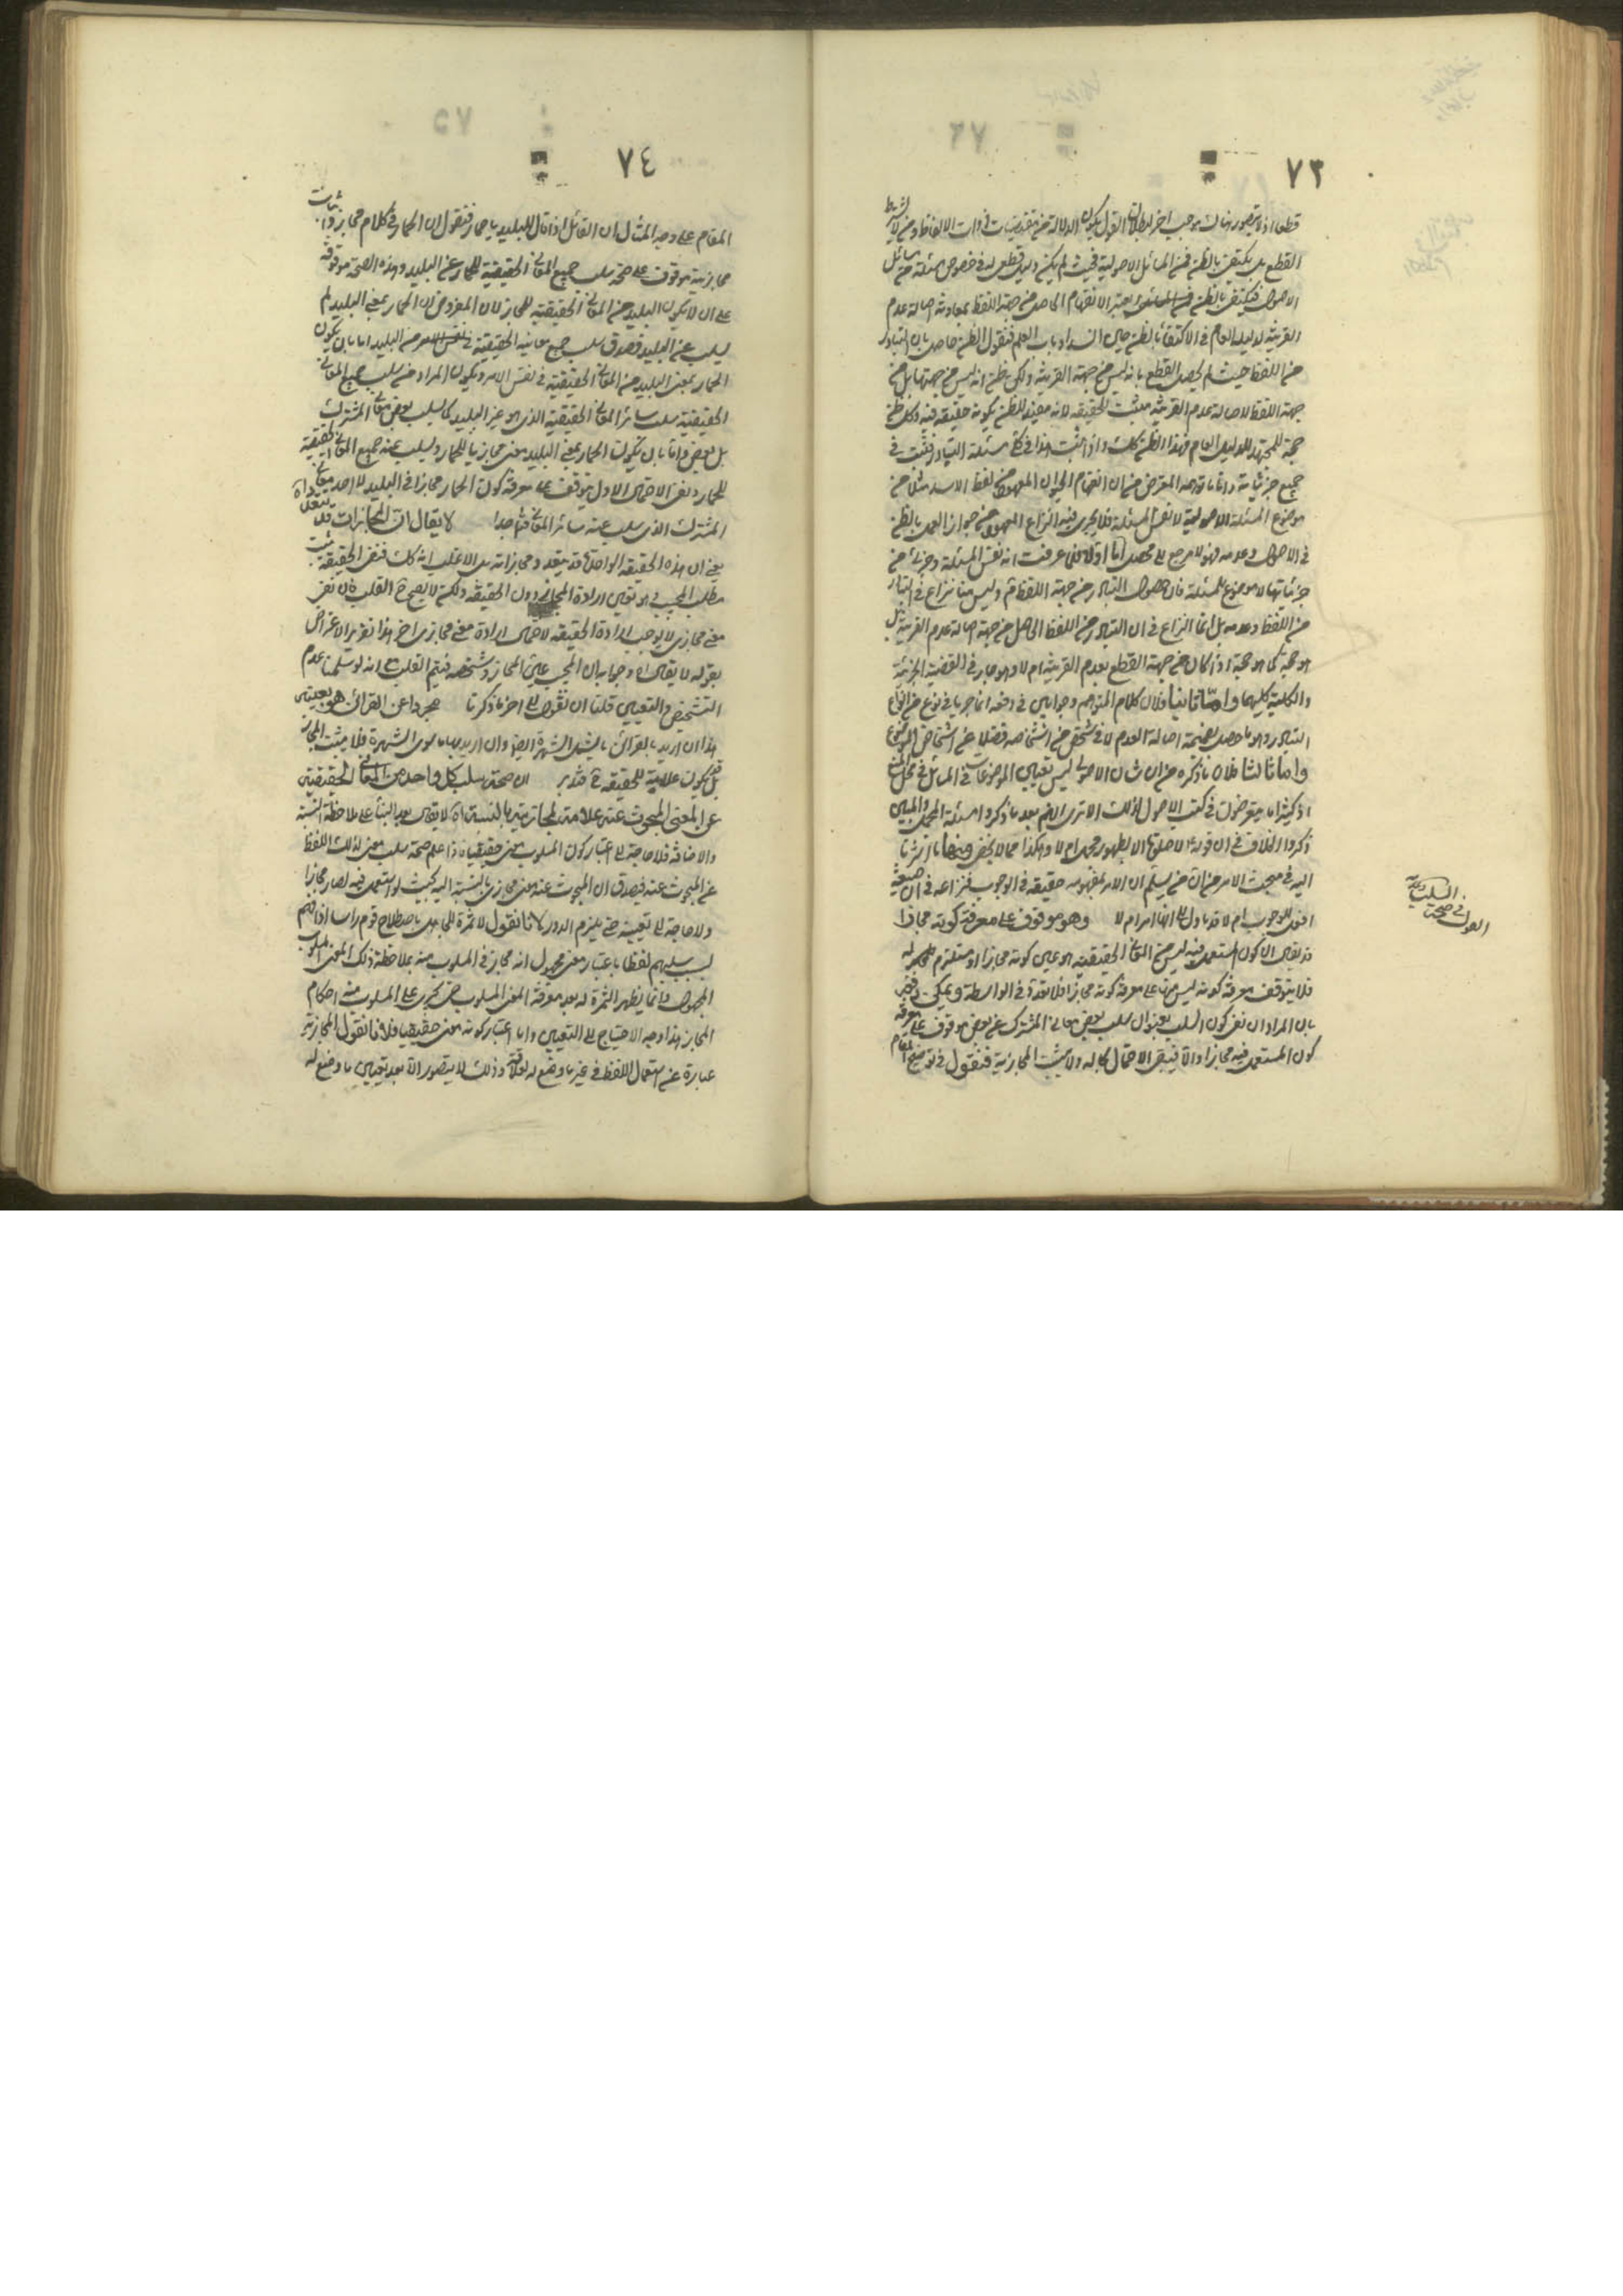 ٧٣
قطعا اذ لا يتصور هناك موجب اخر لبطلان القول بكون الدلالة من مقتضيات ذوات الالفاظ ومن لا يشترط
القطع بل يكتفى بالظن في المسائل الاصولية فحيث لم يكن دليل قطعى له في خصوص مسئلة من مسائل
الاصول فيكتفى بالظن الانفهام الحاصل من جهة اللفظ بمعاونة اصالة عدم
القرينة لدليل العام في الاكتفاء بالظن حال انسداد باب العلم فنقول الظن حاصل بان التبادر
من اللفظ حيث لم يحصل القطع بانه ليس من جهة القرينة ولكن يظن انه ليس من جهتها بل من
جهة اللفظ لاصالة عدم القرينة مثبت للحقيقة لانه مفيد للظن بكونه حقيقة فيه وكل ظن
حجة للمجتهد للدليل العام فهذا الظن كك واذا ثبت هذا في مسئلة التبادر فثبت في
جميع جزئياته واما ما توهمه المعترض من ان انفهام الحيوان المفترس من لفظ الاسد مثلا من
موضوع المسئلة الاصولية لا نفس المسئلة فلا يجرى فيه النزاع المعهود من جواز العمل بالظن
في الاصول وعدمه فهو لا يرجع الى محصل اما اولا فلما عرفت انه نفس المسئلة وجزئى من
جزئياتها لا موضوع للمسئلة فان حصول التبادر من جهة اللفظ وليس هنا نزاع في التبادر
من اللفظ وعدمه بل انما النزاع في ان التبادر من اللفظ الحاصل من جهة اصالة عدم القرينة هل
هو حجة كما هو حجة اذا كان من جهة القطع بعدم القرينة ام لا وهو جار في القضية الجزئية
والكلية كليهما واما ثانيا فلان كلام المتوهم وجوابى في دفعه انما جريا في نوع من انواع
التبادر وهو ما حصل بضميمة اصالة العدم لا في شخص من اشخاصه فضلا عن اشخاص الموضوع
واما ثالثا فلان ما ذكره من ان شان الاصولى ليس تعيين الموضوعات في المسائل في محل المنع
اذ كثيرا ما يتعرضون في كتب الاصول لذلك الا ترى انهم بعد ما ذكروا مسئلة المجمل والمبين
ذكروا الخلاف في ان قوله لا صلوة الا بطهور مجمل ام لا وهكذا مما لا يخفى ومنها ما اشرنا
اليه في مبحث الامر من ان من يسلم ان الامر بمفهومه حقيقة في الوجوب فنزاعه في ان صيغة
افعل للوجوب ام لا قد ياول الى انها امر ام لا وهو موقوف على معرفة كونه مجازا
قد يقال ان كون المستعمل فيه ليس من المعانى الحقيقية هو عين كونه مجازا او مستلزم له
فلا يتوقف معرفة كونه ليس منها على معرفة كونه مجازا فلا فائدة في الواسطة ويمكن دفعه
بان المراد ان نفى كون السلب بعنوان سلب بعض معانى المشترك عن بعض موقوف على معرفة
كون المستعمل فيه مجازا والا فيبقى الاحتمال بحاله ولا يثبت المجازية فنقول في توضيح المقام
القول في صحة السلب وعدمه
٧٤
المقام على وجه المثال ان القائل اذا قال للبليد يا حمار فنقول ان الحمار في كلام مجاز واثبات
مجازيته موقوف على صحة سلب جميع المعانى الحقيقية للحمار عن البليد وهذه الصحة موقوفة
على ان لا يكون البليد من المعانى الحقيقية للحمار لان المفروض ان الحمار بمعنى البليد لم
يسلب عن البليد فصدق سلب جميع معانيه الحقيقية في نفس الامر من البليد اما بان يكون
الحمار بمعنى البليد من المعانى الحقيقية في نفس الامر ويكون المراد من سلب جميع المعانى
الحقيقية سلب سائر المعانى الحقيقية الذى هو غير البليد كما يسلب بعض معانى المشترك
بل بعض واما بان يكون الحمار بمعنى البليد معنى مجازيا للحمار ويسلب عنه جميع المعانى الحقيقية
للحمار ونفى الاحتمال الاول يتوقف على معرفة كون الحمار مجازا في البليد لا احد معانى
المشترك الذى سلب عنه سائر المعانى فتأمل جدا لا يقال ان المجازات قد تتعدد اه
يعنى ان هذه الحقيقة الواحدة قد يتعدد مجازاته بل الاغلب انه كك فنفى الحقيقة يثبت
مطلب المجيب هو تعين ارادة المجاز دون الحقيقة ولكنه لا يصح القلب فان نفى
معنى مجازى لا يوجب ارادة الحقيقة لاحتمال ارادة معنى مجازى اخر هذا تقرير الاعتراض
بقوله لا يقال اه وجوابه ان المجيب عين المجاز وشخصه فيتم القلب مع انه لو سلمنا عدم
التشخص والتعيين قلنا ان نقول الى اخر ما ذكرنا مجردا عن القرائن هو بعينه
هذا ان اريد بالقرائن ما يشمل الشهرة ايضا وان اريد بها ما سوى الشهرة فلا يثبت المجاز
بل قد يكون علامة للحقيقة فتدبر ان صحة سلب كل واحد من المعانى الحقيقية
عن المعنى المبحوث عنه علامة لمجازيته بالنسبة اه لا يقال بعد البناء على ملاحظة النسبة
والاضافة فلا حاجة الى اعتبار كون المسلوب معنى حقيقيا فاذا علم صحة سلب معنى لذلك اللفظ
عن المبحوث عنه فيصدق ان المبحوث عنه معنى مجازى بالنسبة اليه بحيث لو استعمل فيه لصار مجازا
ولا حاجة الى تعيينه حتى يلزم الدور لانا نقول لا ثمرة للجاهل باصطلاح قوم راسا اذا فهم
بسبب سلبهم لفظا باعتبار معنى مجهول انه مجاز في المسلوب منه بملاحظة ذلك المعنى المسلوب
المجهول وانما يظهر الثمرة له بعد معرفة المعنى المسلوب حتى يجرى على المسلوب منه احكام
المجاز هذا وجه الاحتياج الى التعيين واما اعتبار كونه معنى حقيقيا فلانا نقول المجازية
عبارة عن استعمال اللفظ في غير ما وضع له لعلاقة وذلك لا يتصور الا بعد تعيين ما وضع له